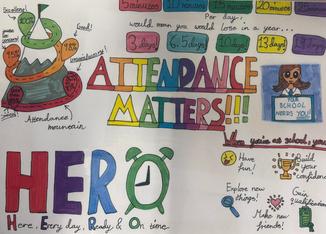 minutes
minutes
minutes
minutes
Per day,
would mean you would lose in a year...
3 days!
6.5 days
10 days!
13 days!
Excellent!
100%
Good!
Attendance
mountain
ATTENDANCE
MATTERS!!!
YOUR
SCHOOL
NEEDS YOU!
When you're at school, you
Have
fun!
Build
your
confidence
Explore new
things!
Gain
qualifications
Make new
friends!
HERO
Here, Every day, Ready & On time